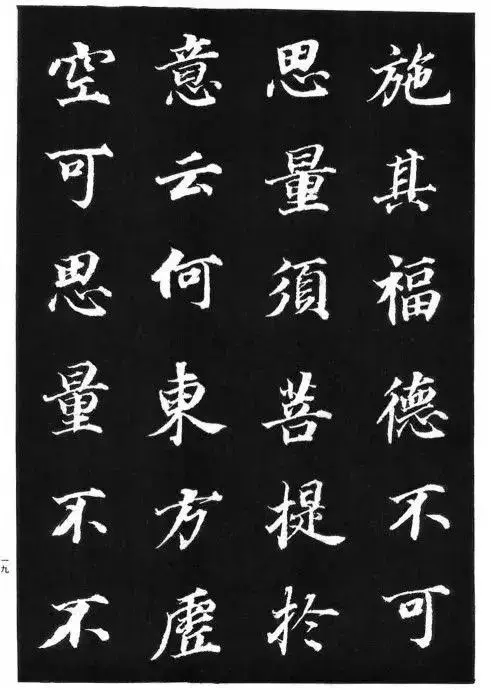 施其福德不可
思量須菩提扵
意云何東方虛
空可思量不不
一九